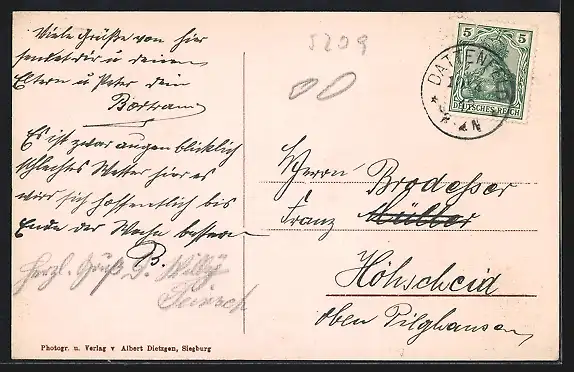 Viele Grüße von hier
sendet dir u deinen
Eltern u Peter dein
Bertram
Es ist zwar augenblicklich
schlechtes Wetter hier es
wird sich hoffentlich bis
Ende der Woche bessern
B.
Herzl. Gruß d. Willy
5209
5 5
DEUTSCHES REICH
DATTENFELD
Herrn Brodesser
Franz Müller
Höhscheid
oben Pilghausen
Photogr. u. Verlag v Albert Dietzgen, Siegburg